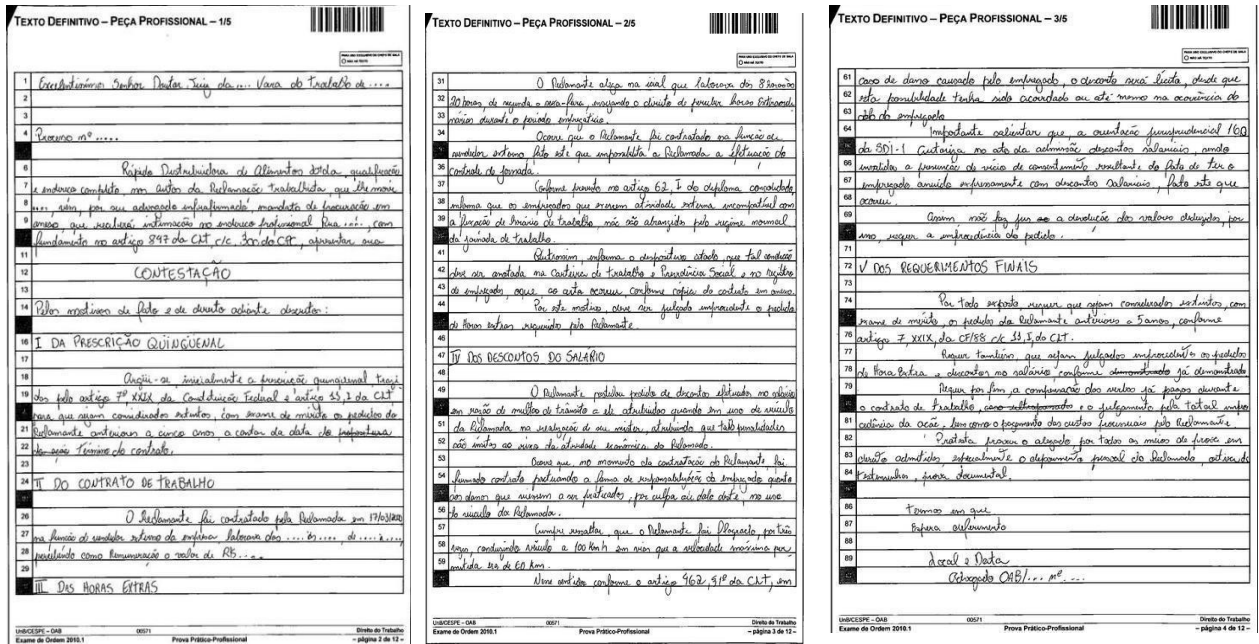 TEXTO DEFINITIVO – PEÇA PROFISSIONAL – 1/5
1 Excelentíssimo Senhor Doutor Juiz da .... Vara do Trabalho de ....
2
3
4 Processo nº .....
5
6 Rápido Distribuidora de Alimentos Ltda, qualificação
7 e endereço completo nos autos da Reclamação trabalhista, que lhe move
8 ...., vem, por seu advogado infrafirmado, mandato de procuração em
9 anexo, que receberá intimação no endereço profissional Rua ....., com
10 fundamento no artigo 847 da CLT, c/c. 300 do CPC, apresentar sua
11
12 CONTESTAÇÃO
13
14 Pelos motivos de fato e de direito adiante descritos:
15
16 I DA PRESCRIÇÃO QUINQUENAL
17
18 Argüi-se, inicialmente a prescrição quinquenal trazi
19 dos pelo artigo 7º XXIX da Constituição Federal e artigo 11, I da CLT
20 para que sejam considerados extintos, com exame de mérito os pedidos do
21 Reclamante anteriores a cinco anos, a contar da data da propositura
22 da ação término do contrato.
23
24 II DO CONTRATO DE TRABALHO
25
26 O Reclamante foi contratado pela Reclamada em 17/03/
27 na função de vendedor externo da empresa laborava das .... às ...., de ..... a ....,
28 percebendo como Remuneração o valor de R$ ....
29
30 III DAS HORAS EXTRAS
UnB/CESPE – OAB 00571 Direito do Trabalho
Exame de Ordem 2010.1 Prova Prático-Profissional – página 2 de 12 –
TEXTO DEFINITIVO – PEÇA PROFISSIONAL – 2/5
31 O Reclamante alega na inicial que laborava das 8 horas às
32 20 horas, de segunda a sexta-feira, ensejando o direito de perceber horas Extraordi
33 nárias durante o período empregatício.
34 Ocorre que o Reclamante foi contratado na função de
35 vendedor externo, fato este que impossibilita a Reclamada a efetuação do
36 controle de jornada.
37 Conforme previsto no artigo 62, I do diploma consolidado,
38 informa que os empregados que exercem atividade externa incompatível com
39 a fixação de horário de trabalho, não são abrangidos pelo regime normal
40 da jornada de trabalho.
41 Outrossim, informa o dispositivo citado, que tal condição
42 deve ser anotada na Carteira de trabalho e Previdência Social e no registro
43 de empregados, oque ao certo ocorreu, conforme cópia do contrato em anexo.
44 Por este motivo, deve ser julgado improcedente o pedido
45 de Horas extras requerido pelo Reclamante.
46
47 IV DOS DESCONTOS DO SALÁRIO
48
49 O Reclamante postulou pedido de descontos efetuados no salário
50 em razão de multas de trânsito a ele atribuidas quando em uso de veículo
51 da Reclamada na realização de seu mister, atribuindo que tais penalidades
52 são ínsitas ao risco da atividade econômica da Reclamada.
53 Ocorre que, no momento da contratação do Reclamante, foi
54 firmado contrato pactuando a forma de responsabilização do empregado quanto
55 aos danos que viessem a ser praticados, por culpa ou dolo deste, no uso
56 do veículo da Reclamada.
57 Cumpre ressaltar, que o Reclamante foi flagrado, por três
58 vezes, conduzindo veículo a 100 km h em vias que a velocidade máxima per
59 mitida era de 60 km.
60 Nesse sentido conforme o artigo 462, §1º da CLT, em
UnB/CESPE – OAB 00571 Direito do Trabalho
Exame de Ordem 2010.1 Prova Prático-Profissional – página 3 de 12 –
TEXTO DEFINITIVO – PEÇA PROFISSIONAL – 3/5
61 caso de dano causado pelo empregado, o desconto será lícito, desde que
62 esta possibilidade tenha sido acordado ou até mesmo na ocorrência do
63 dolo do empregado
64 Importante salientar que, a orientação jurisprudencial 160
65 da SDI-1 autoriza no ato da admissão descontos salariais, sendo
66 invalida a presunção de vício de consentimento resultante do fato de ter o
67 empregado anuido expressamente com descontos salariais, fato este que
68 ocorreu.
69 Assim, não faz jus a devolução dos valores deduzidos, por
70 isso, requer a improcedência do pedido.
71
72 V DOS REQUERIMENTOS FINAIS
73
74 Por todo exposto, requer que sejam considerados extintos, com
75 exame de mérito, os pedidos da Reclamante anteriores a 5 anos, conforme
76 artigo 7, XXIX, da CF/88 c/c 11, I, da CLT.
77 Requer também, que sejam julgados improcedentes os pedidos
78 de Hora Extra e descontos no salário conforme demonstrado já demonstrado
79 Requer por fim, a compensação das verbas já pagas durante
80 o contrato de trabalho, e o julgamento pela total impro
81 cedência da ação, bem como o pagamento das custas processuais pelo Reclamante
82 Protesta provar o alegado por todos os meios de prova em
83 direito admitidos, especialmente o depoimento pessoal do Reclamado, oitiva de
84 testemunhas, prova documental.
85
86 Termos em que
87 Espera deferimento
88
89 Local e Data
90 Advogado OAB/... nº ....
UnB/CESPE – OAB 00571 Direito do Trabalho
Exame de Ordem 2010.1 Prova Prático-Profissional – página 4 de 12 –